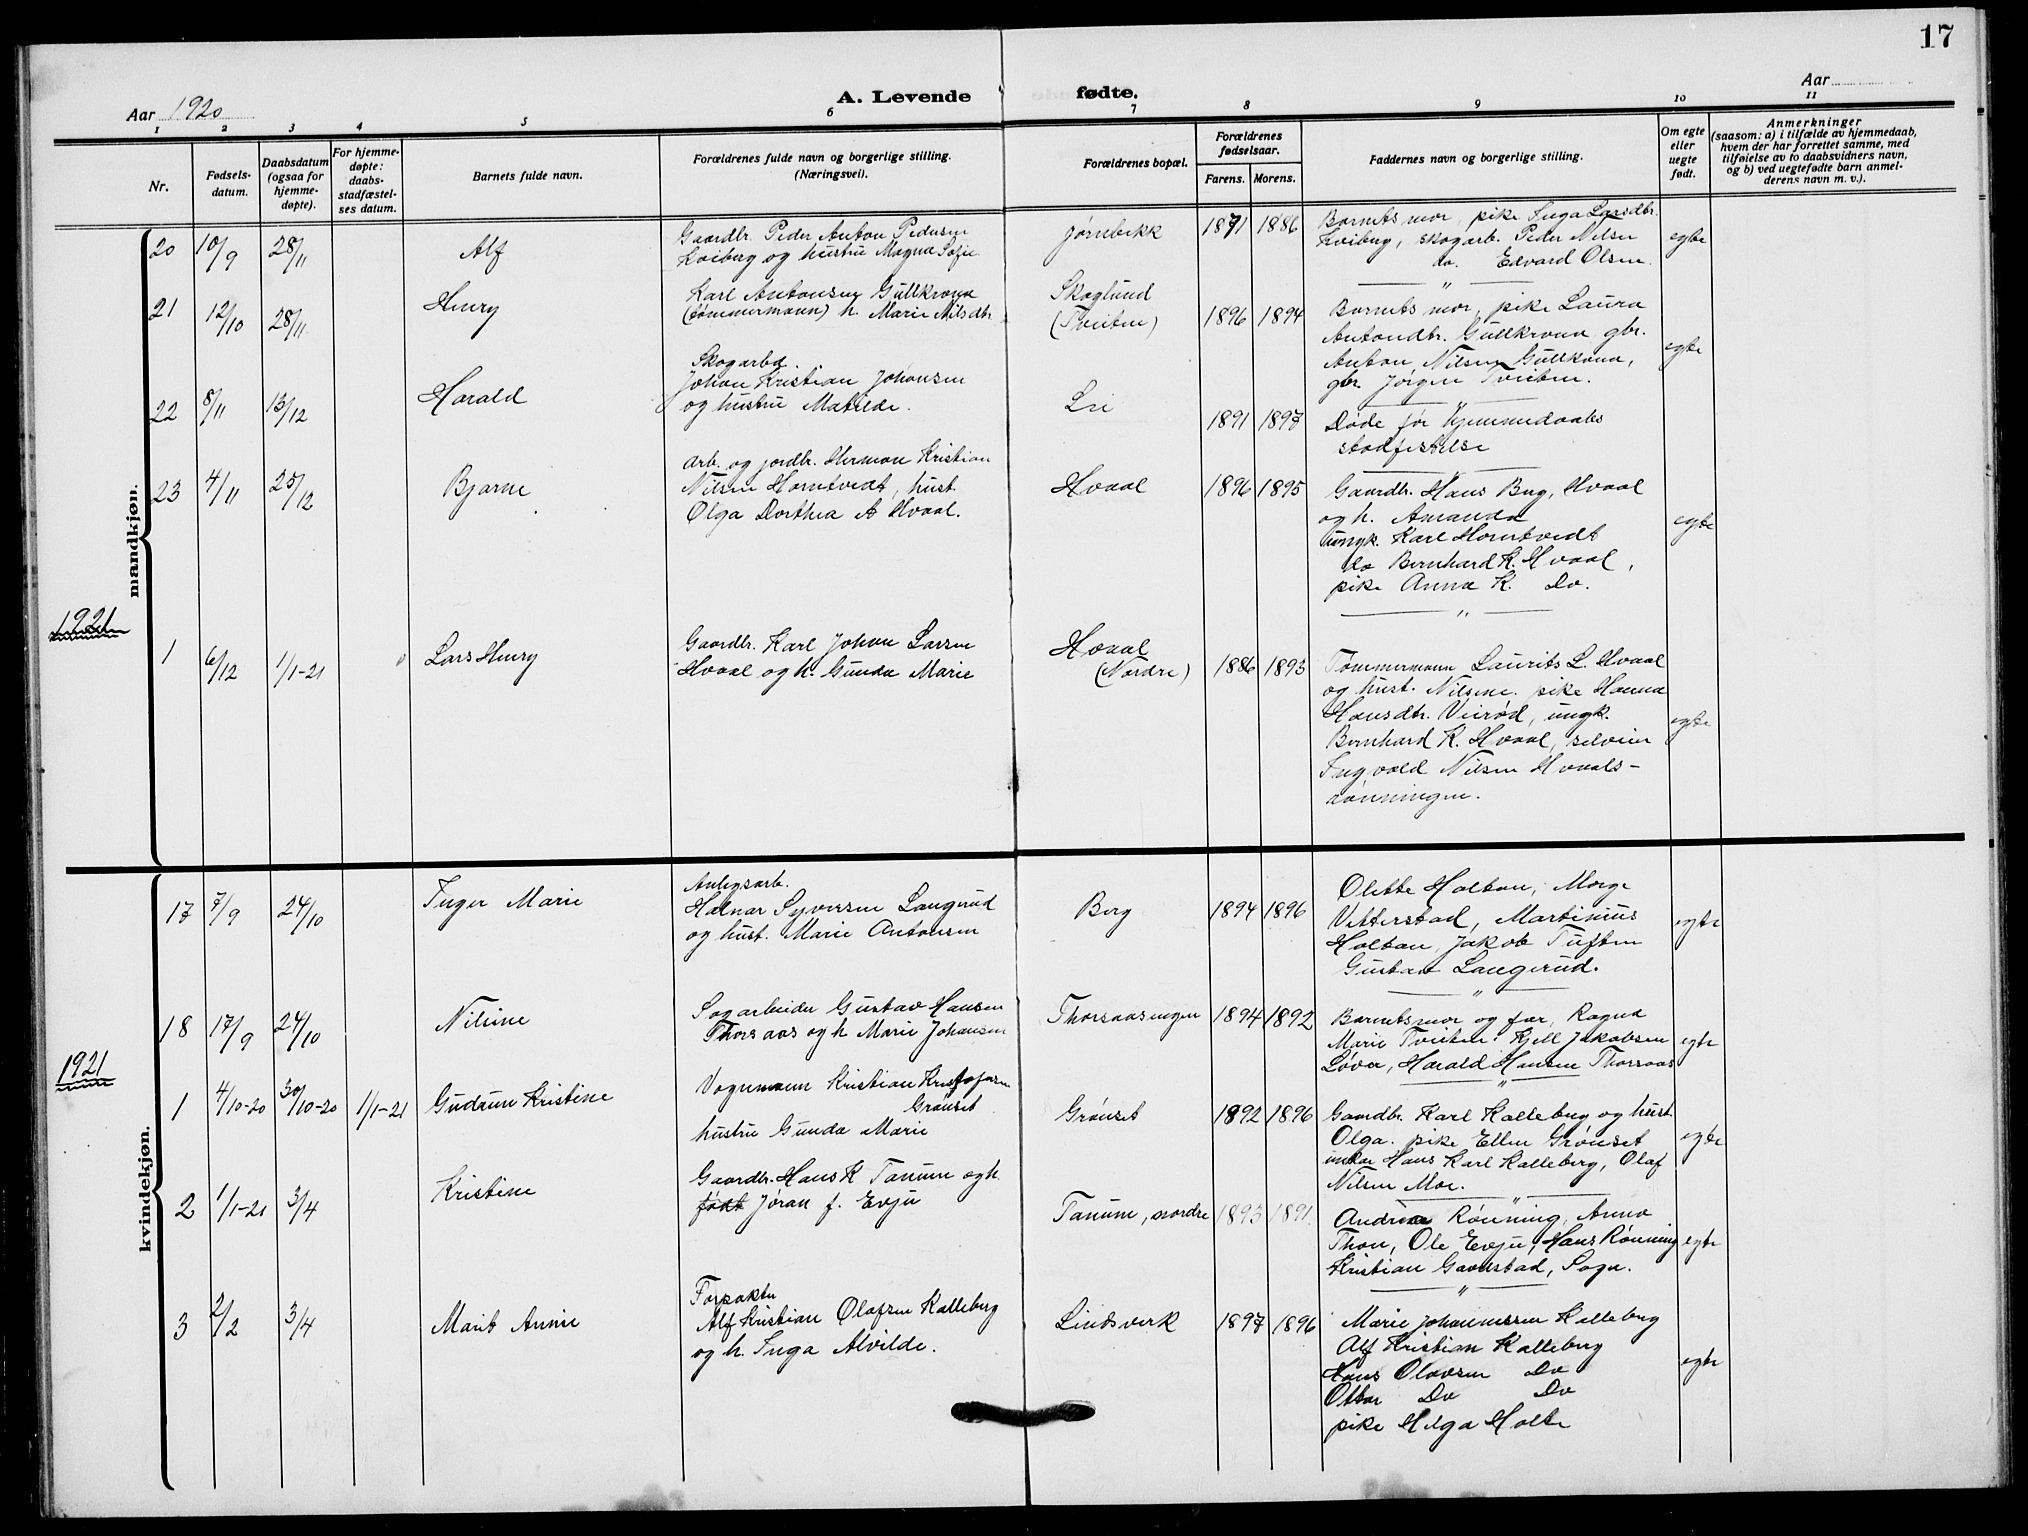 17
Aar 1920
A. Levende fødte.
Aar
1 2 3 4 5 6 7 8 9 10 11
Nr.
Fødsels-
datum.
Daabsdatum
(ogsaa for
hjemme-
døpte).
For hjemme-
døpte:
daabs-
stadfæstel-
ses datum.
Barnets fulde navn.
Forældrenes fulde navn og borgerlige stilling.
(Næringsvei).
Forældrenes bopæl.
Forældrenes
fødselsaar.
Farens. Morens.
Faddernes navn og borgerlige stilling.
Om egte
eller
uegte
født.
Anmerkninger
(saasom: a) i tilfælde av hjemmedaab,
hvem der har forrettet samme, med
tilføielse av to daabsvidners navn,
og b) ved uegtefødte barn anmel-
derens navn m. v.).
mandkjøn.
20 10/9 28/11 Alf
Gaardbr. Peder Anton Pedersen
Kviberg og hustru Magna Sofie
Jørnbekk 1871 1886
Barnets mor, pike Inga Larsdbr.
Kviberg, skogarb. Peder Nilsen
do. Edvard Olsen.
egte
21 12/10 28/11 Henry
Karl Antonsen Gullkrona
(tømmermann) h. Marie Nilsdbr
Skoglund
(Tveiten)
1896 1894
Barnets mor, pike Laura
Antondbr. Gullkrona gbr.
Anton Nilsen Gullkona,
gbr. Jørgen Tveiten.
egte
22 8/11 13/12 Harald
Skogarbd.
Johan Kristian Johansen
og hustru Matilde.
Lie 1891 1897
Døde før hjemmedaabs
stadfestelse
23 4/11 25/12 Bjarne
Arb. og jordbr. Herman Kristian
Nilsen Horntvedt, hust.
Olga Dorthea A Hvaal.
Hvaal 1896 1895
Gaardbr. Hans Berg, Hvaal
og h. Amanda
ungk. Karl Horntvedt
do Bernhard K. Hvaal,
pike Anna K. Do.
egte
1921
1 6/12 1/1-21 Lars Henry
Gaardbr. Karl Johan Larsen
Hvaal og h. Gunda Marie
Hvaal
(Nordre)
1886 1893
Tømmermann Laurits L. Hvaal
og hust. Nilsine. pike Hanna
Hansdtr. Veirød, ungk.
Bernhard K. Hvaal, selveier
Ingvald Nilsen Hvaals-
rønningen.
egte
kvindekjøn.
17 7/9 24/10 Inger Marie
Anlegsarb.
Halvar Syversen Langerud
og hust. Marie Antonsen
Berg 1894 1896
Olette Holtan, Marge
Vetterstad, Martinius
Holtan, Jakob Tuften
Gustav Langerud.
egte
18 17/9 24/10 Nilsine
Sagarbeider Gustav Hansen
Thorsaas og h Marie Johansen
Thorsaasengen 1894 1892
Barnets mor og far, Ragna
Marie Tveiten. Kjell Jakobsen
Løver, Harald Hansen Thorsaas
egte
1921
1 4/10-20 30/10-20 1/1-21 Gudrun Kristine
Vognmann Kristian Kristofersen
Grønset
hustru Gunda Marie
Grønset 1892 1896
Gaardbr. Karl Kalleberg og hust.
Olga. pike Ellen Grønset
unkar Hans Karl Kalleberg, Olaf
Nilsen Moe.
egte
2 1/1-21 3/4 Kristine
Gaardbr. Hans K Tanum og h.
født Jøran f. Evju
Tanum, nordre 1893 1891
Andrea Rønning, Anna
Thon, Ole Evju, Hans Rønning
Kristian Gavelstad, Sogn.
egte
3 2/2 3/4 Marit Annie
Forpakter
Alf Kristian Olafsen Kalleberg
og h. Inga Alvilde.
Lindsverk 1897 1896
Marie Johannessen Kalleberg
Alf Kristian Kalleberg
Hans Olavsen Do
Ottar Do Do
pike Helga Holte
egte